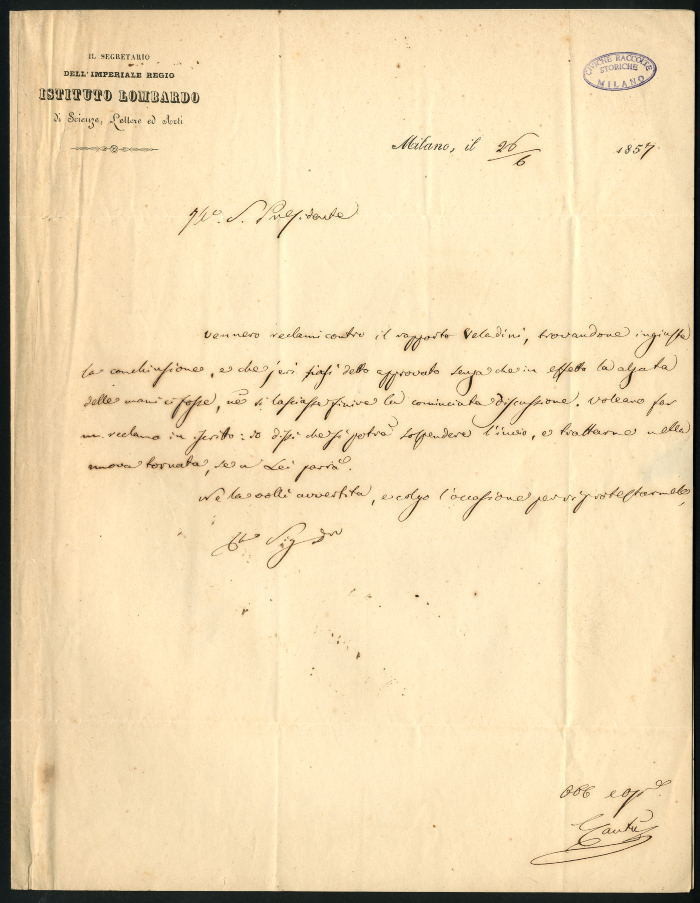 IL SEGRETARIO
DELL'IMPERIALE REGIO
ISTITUTO LOMBARDO
di Scienze, Lettere ed Arti
CIVICHE RACCOLTE
STORICHE
MILANO
Milano, il 26/6 1857
S. Presidente
Vennero reclami contro il rapporto Veladini, trovandone ingiusta
la conchiusione, e che jeri siasi detto approvato senza che in effetto la alzata
delle mani ci fosse, nè si lasciasse finire la cominciata discussione. Voleano far
un reclamo in iscritto: io dissi che si potrà sospendere l'invio, e trattarne nella
nuova tornata, se a Lei parrà.
Ne la volli avvertita, e colgo l'occasione per riprotestarmele,
Sig
obb
Cantù